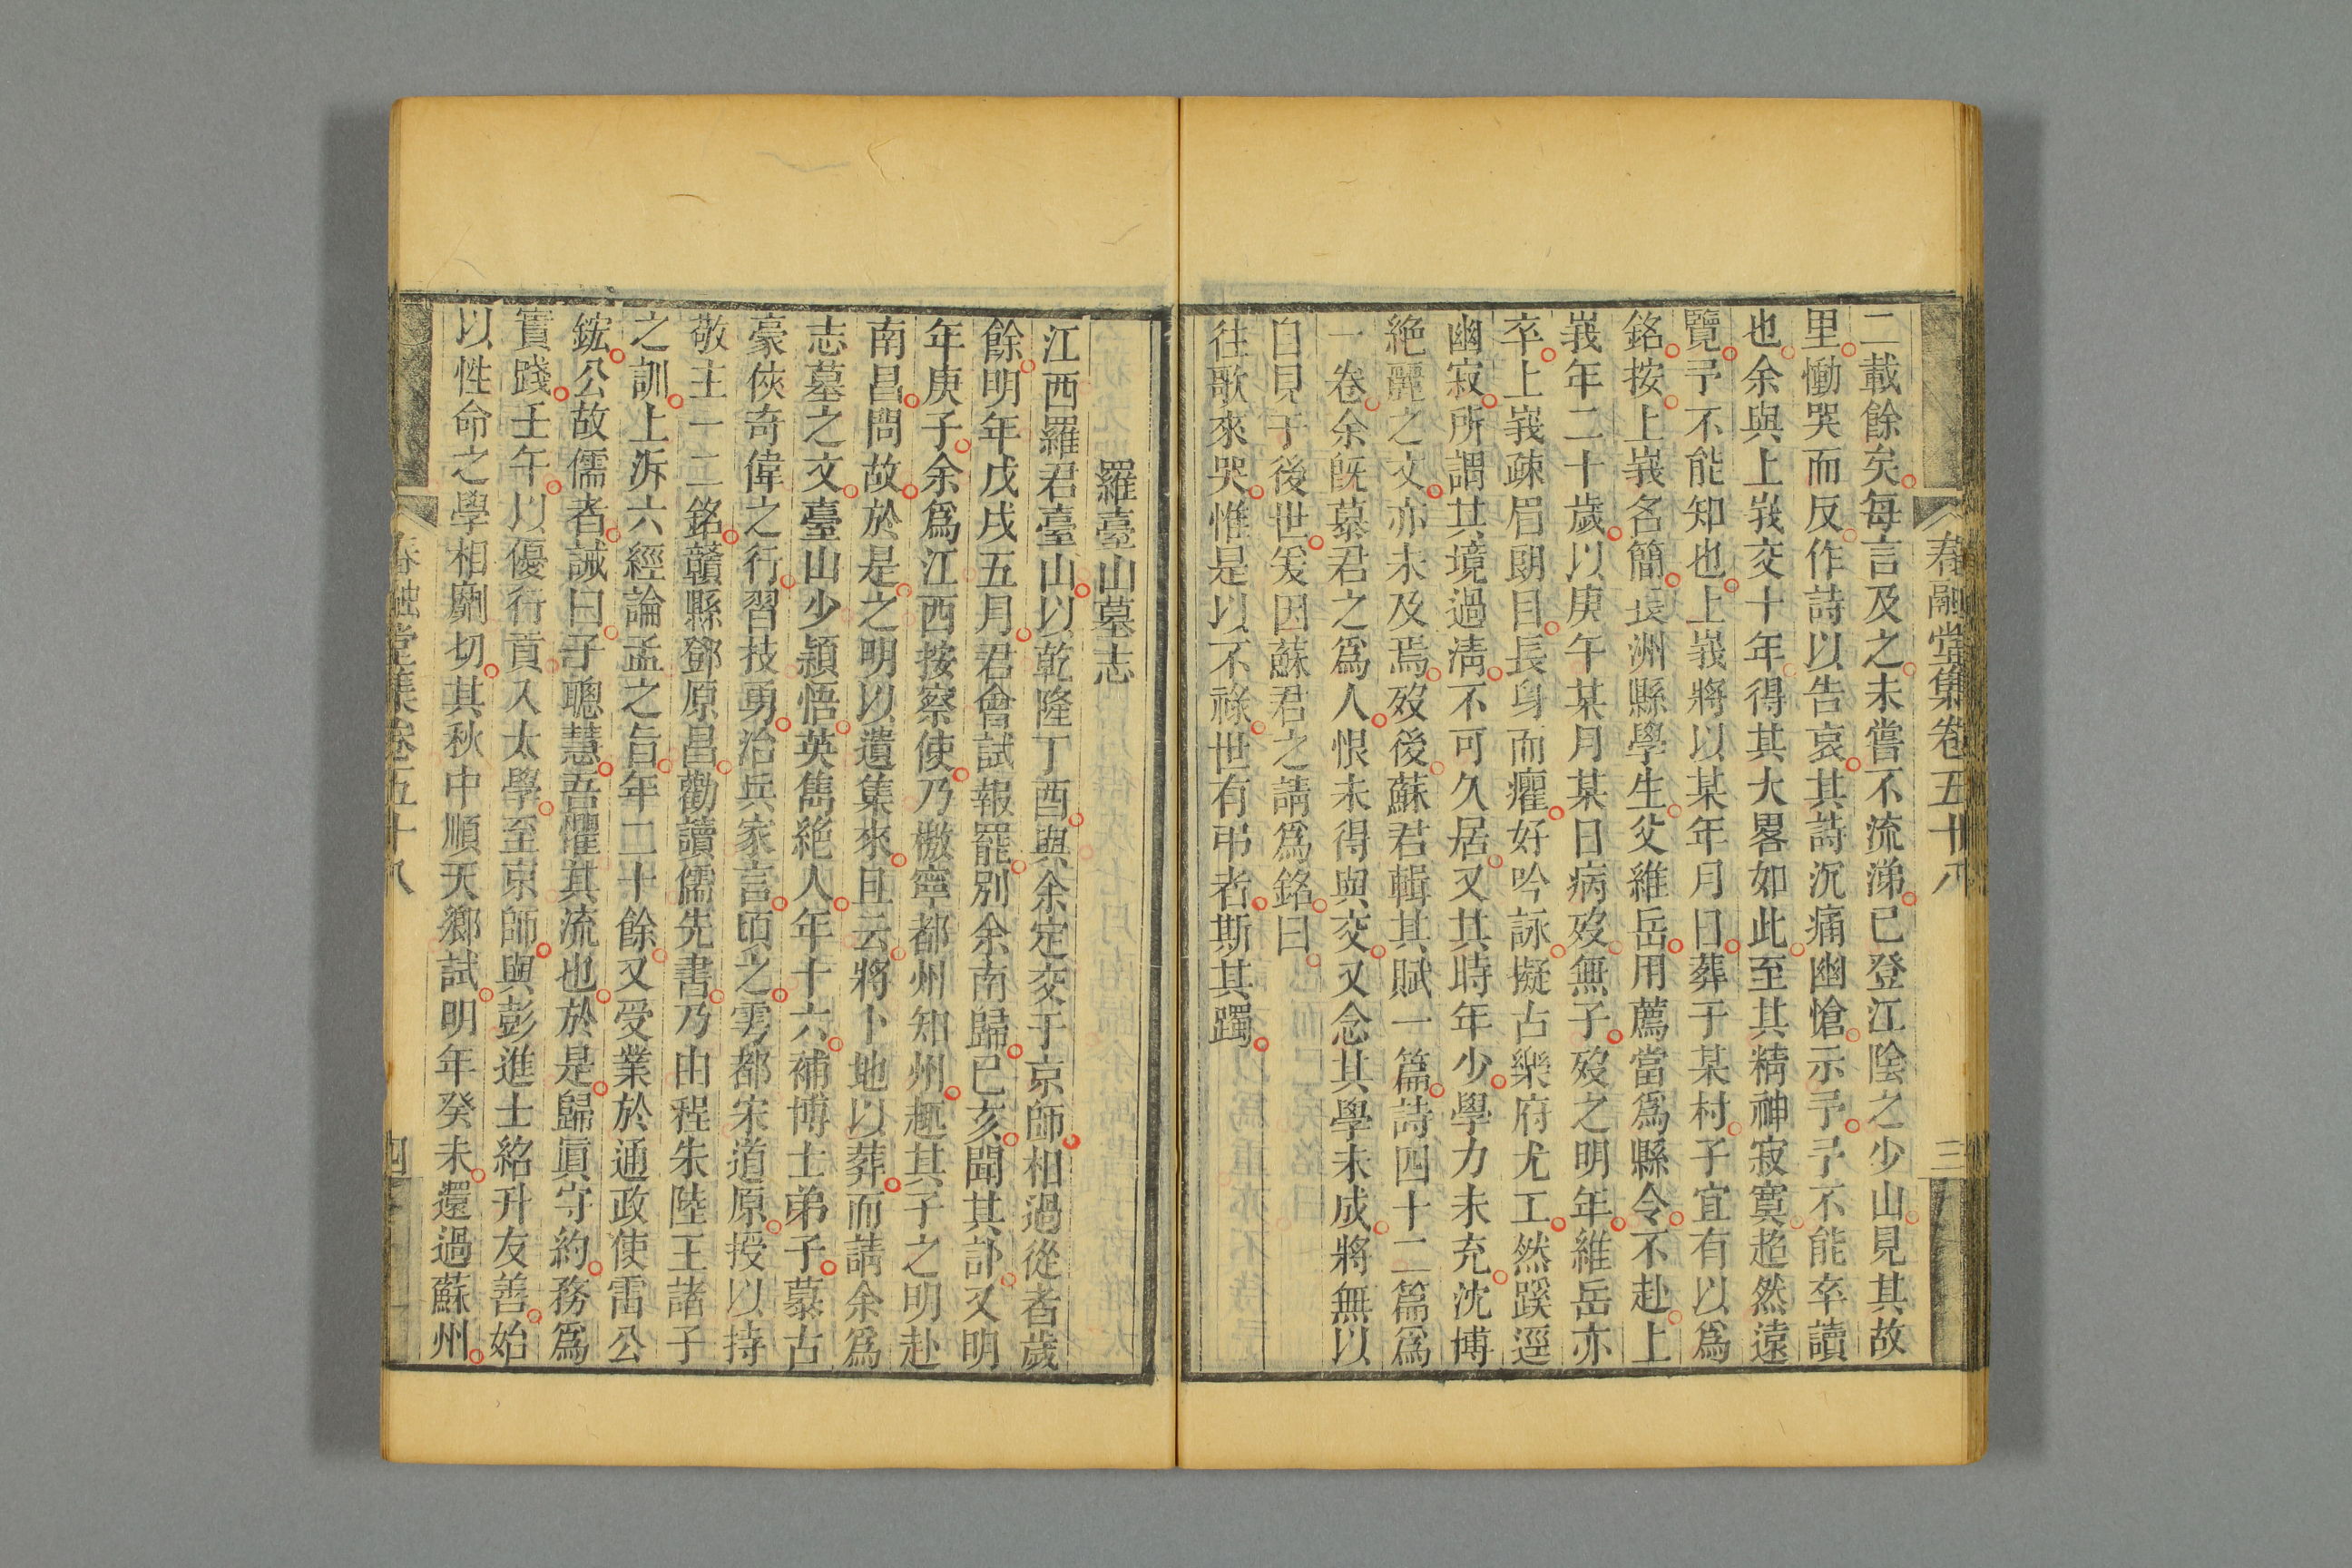 春融堂集卷五十八
三
二載餘矣每言及之未嘗不流涕已登江陰之少山見其故
里慟哭而反作詩以告哀其詩沉痛幽愴示予予不能卒讀
也余與上峩交十年得其大畧如此至其精神寂寞超然遠
覽予不能知也上峩將以某年月日葬于某村子宜有以爲
銘按上峩名簡長洲縣學生父維岳用薦當爲縣令不赴上
峩年二十歲以庚午某月某日病歿無子歿之明年維岳亦
卒上峩疎眉朗目長身而癯好吟詠擬古樂府尤工然蹊逕
幽寂所謂其境過淸不可久居又其時年少學力未充沈博
絶麗之文亦未及焉歿後蘇君輯其賦一篇詩四十二篇爲
一卷余旣慕君之爲人恨未得與交又念其學未成將無以
自見于後世爰因蘇君之請爲銘曰
往歌來哭惟是以不祿世有弔者斯其躅
羅臺山墓志
江西羅君臺山以乾隆丁酉與余定交于京師相過從者歲
餘明年戊戌五月君會試報罷別余南歸已亥聞其訃又明
年庚子余爲江西按察使乃檄寧都州知州趣其子之明赴
南昌問故於是之明以遺集來且云將卜地以葬而請余爲
志墓之文臺山少穎悟英雋絶人年十六補博士弟子慕古
豪俠奇偉之行習技勇治兵家言頃之雩都宋道原授以持
敬主一二銘贛縣鄧原昌勸讀儒先書乃由程朱陸王諸子
之訓上泝六經論孟之旨年二十餘又受業於通政使雷公
鋐公故儒者誡曰子聰慧吾懼其流也於是歸眞守約務爲
實踐壬午以優行貢入太學至京師與彭進士紹升友善始
以性命之學相劘切其秋中順天鄉試明年癸未還過蘇州
春融堂集卷五十八
四